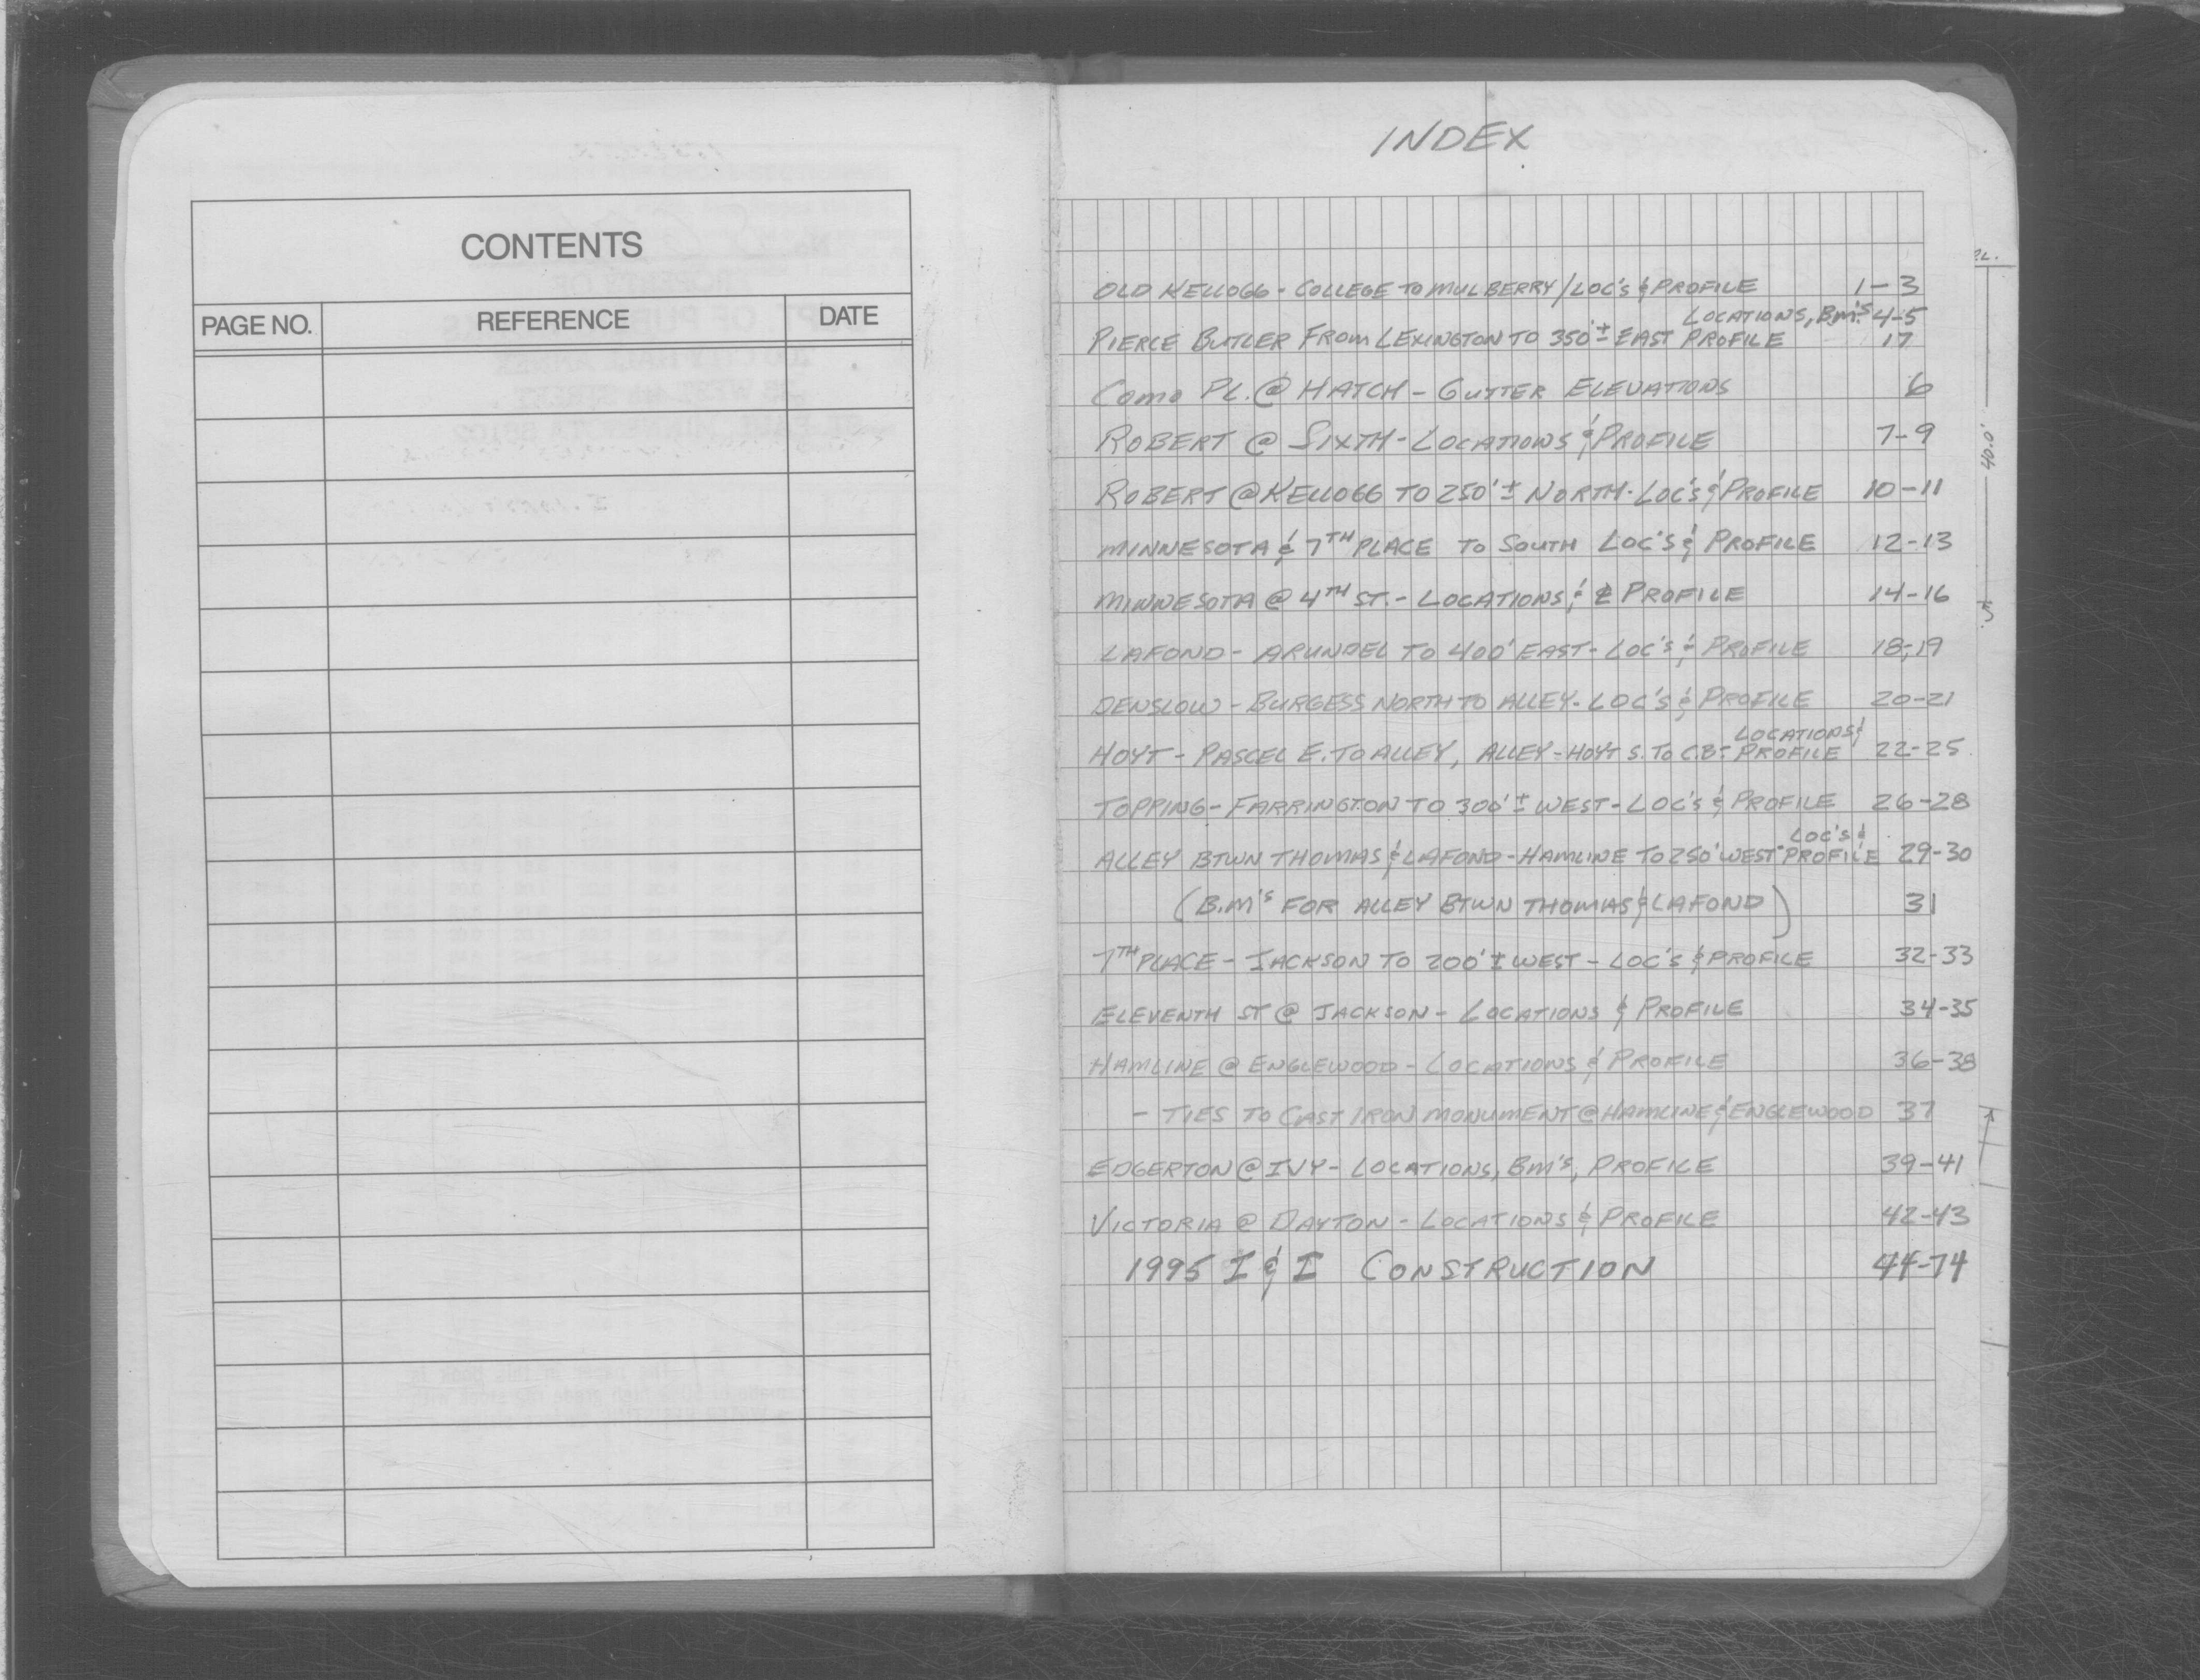 CONTENTS
PAGE NO. REFERENCE DATE
INDEX
OLD KELLOGG - COLLEGE TO MULBERRY/LOC'S & PROFILE 1-3
LOCATIONS, B.M.'S 4-5
PIERCE BUTLER FROM LEXINGTON TO 350'± EAST PROFILE 17
COMO PL. @ HATCH - GUTTER ELEVATIONS 6
ROBERT @ SIXTH - LOCATIONS & PROFILE 7-9
ROBERT @ KELLOGG TO 250'± NORTH - LOC'S & PROFILE 10-11
MINNESOTA & 7TH PLACE TO SOUTH LOC'S & PROFILE 12-13
MINNESOTA @ 4TH ST. - LOCATIONS & PROFILE 14-16
LAFOND - ARUNDEL TO 400' EAST - LOC'S & PROFILE 18,19
DENSLOW - BURGESS NORTH TO ALLEY - LOC'S & PROFILE 20-21
LOCATIONS &
HOYT - PASCEL E. TO ALLEY, ALLEY - HOYT S. TO C.B. - PROFILE 22-25
TOPPING - FARRINGTON TO 300'± WEST - LOC'S & PROFILE 26-28
LOC'S &
ALLEY BTWN THOMAS & LAFOND - HAMLINE TO 250' WEST - PROFILE 29-30
(B.M'S FOR ALLEY BTWN THOMAS & LAFOND) 31
7TH PLACE - JACKSON TO 200'± WEST - LOC'S & PROFILE 32-33
ELEVENTH ST @ JACKSON - LOCATIONS & PROFILE 34-35
HAMLINE @ ENGLEWOOD - LOCATIONS & PROFILE 36-38
- TIES TO CAST IRON MONUMENT @ HAMLINE & ENGLEWOOD 37
EDGERTON @ IVY - LOCATIONS, BM'S, PROFILE 39-41
VICTORIA @ DAYTON - LOCATIONS & PROFILE 42-43
1995 I & I CONSTRUCTION 44-74
40.0'